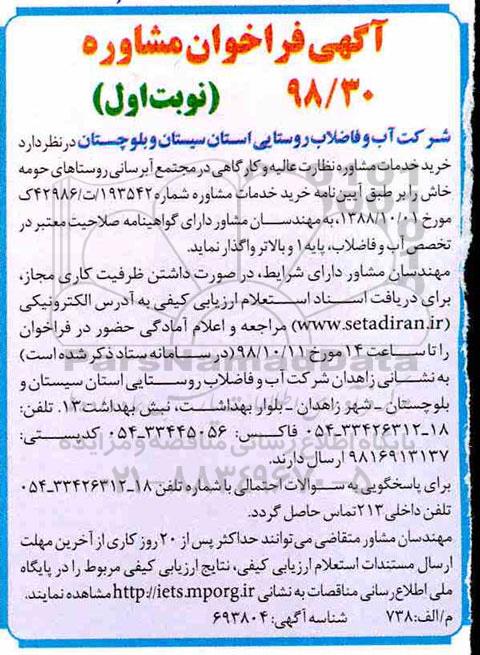 آگهی فراخوان مشاوره
۹۸/۳۰ (نوبت اول)
شرکت آب و فاضلاب روستایی استان سیستان و بلوچستان در نظر دارد
خرید خدمات مشاوره نظارت عالیه و کارگاهی در مجتمع آبرسانی روستاهای حومه
خاش را بر طبق آیین نامه خرید خدمات مشاوره شماره ۱۹۳۵۴۲/ت/۴۲۹۸۶ک
مورخ ۱۳۸۸/۱۰/۰۱، به مهندسان مشاور دارای گواهینامه صلاحیت معتبر در
تخصص آب و فاضلاب، پایه ۱ و بالاتر واگذار نماید.
مهندسان مشاور دارای شرایط، در صورت داشتن ظرفیت کاری مجاز،
برای دریافت اسناد استعلام ارزیابی کیفی به آدرس الکترونیکی
(www.setadiran.ir) مراجعه و اعلام آمادگی حضور در فراخوان
را تا ساعت ۱۴ مورخ ۹۸/۱۰/۱۱ (در سامانه ستاد ذکر شده است)
به نشانی زاهدان شرکت آب و فاضلاب روستایی استان سیستان و
بلوچستان - شهر زاهدان - بلوار بهداشت، نبش بهداشت ۱۳. تلفن:
۱۸-۳۳۴۲۶۳۱۲-۰۵۴ فاکس: ۳۳۴۴۵۰۵۶-۰۵۴ کدپستی:
۹۸۱۶۹۱۳۱۳۷ ارسال دارند.
برای پاسخگویی به سوالات احتمالی با شماره تلفن ۱۸-۳۳۴۲۶۳۱۲-۰۵۴
تلفن داخلی ۲۱۳ تماس حاصل گردد.
مهندسان مشاور متقاضی می توانند حداکثر پس از ۲۰ روز کاری از آخرین مهلت
ارسال مستندات استعلام ارزیابی کیفی، نتایج ارزیابی کیفی مربوط را در پایگاه
ملی اطلاع رسانی مناقصات به نشانی http://iets.mporg.ir مشاهده نمایند.
م/الف: ۷۳۸ شناسه آگهی: ۶۹۳۸۰۴
ParsNamadData
پایگاه اطلاع رسانی مناقصه و مزایده
۰۲۱-۸۸۳۴۹۶۷۰-۵